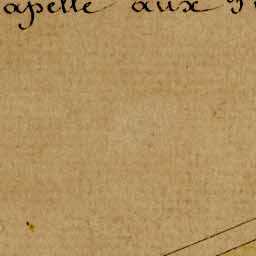 apelle aux